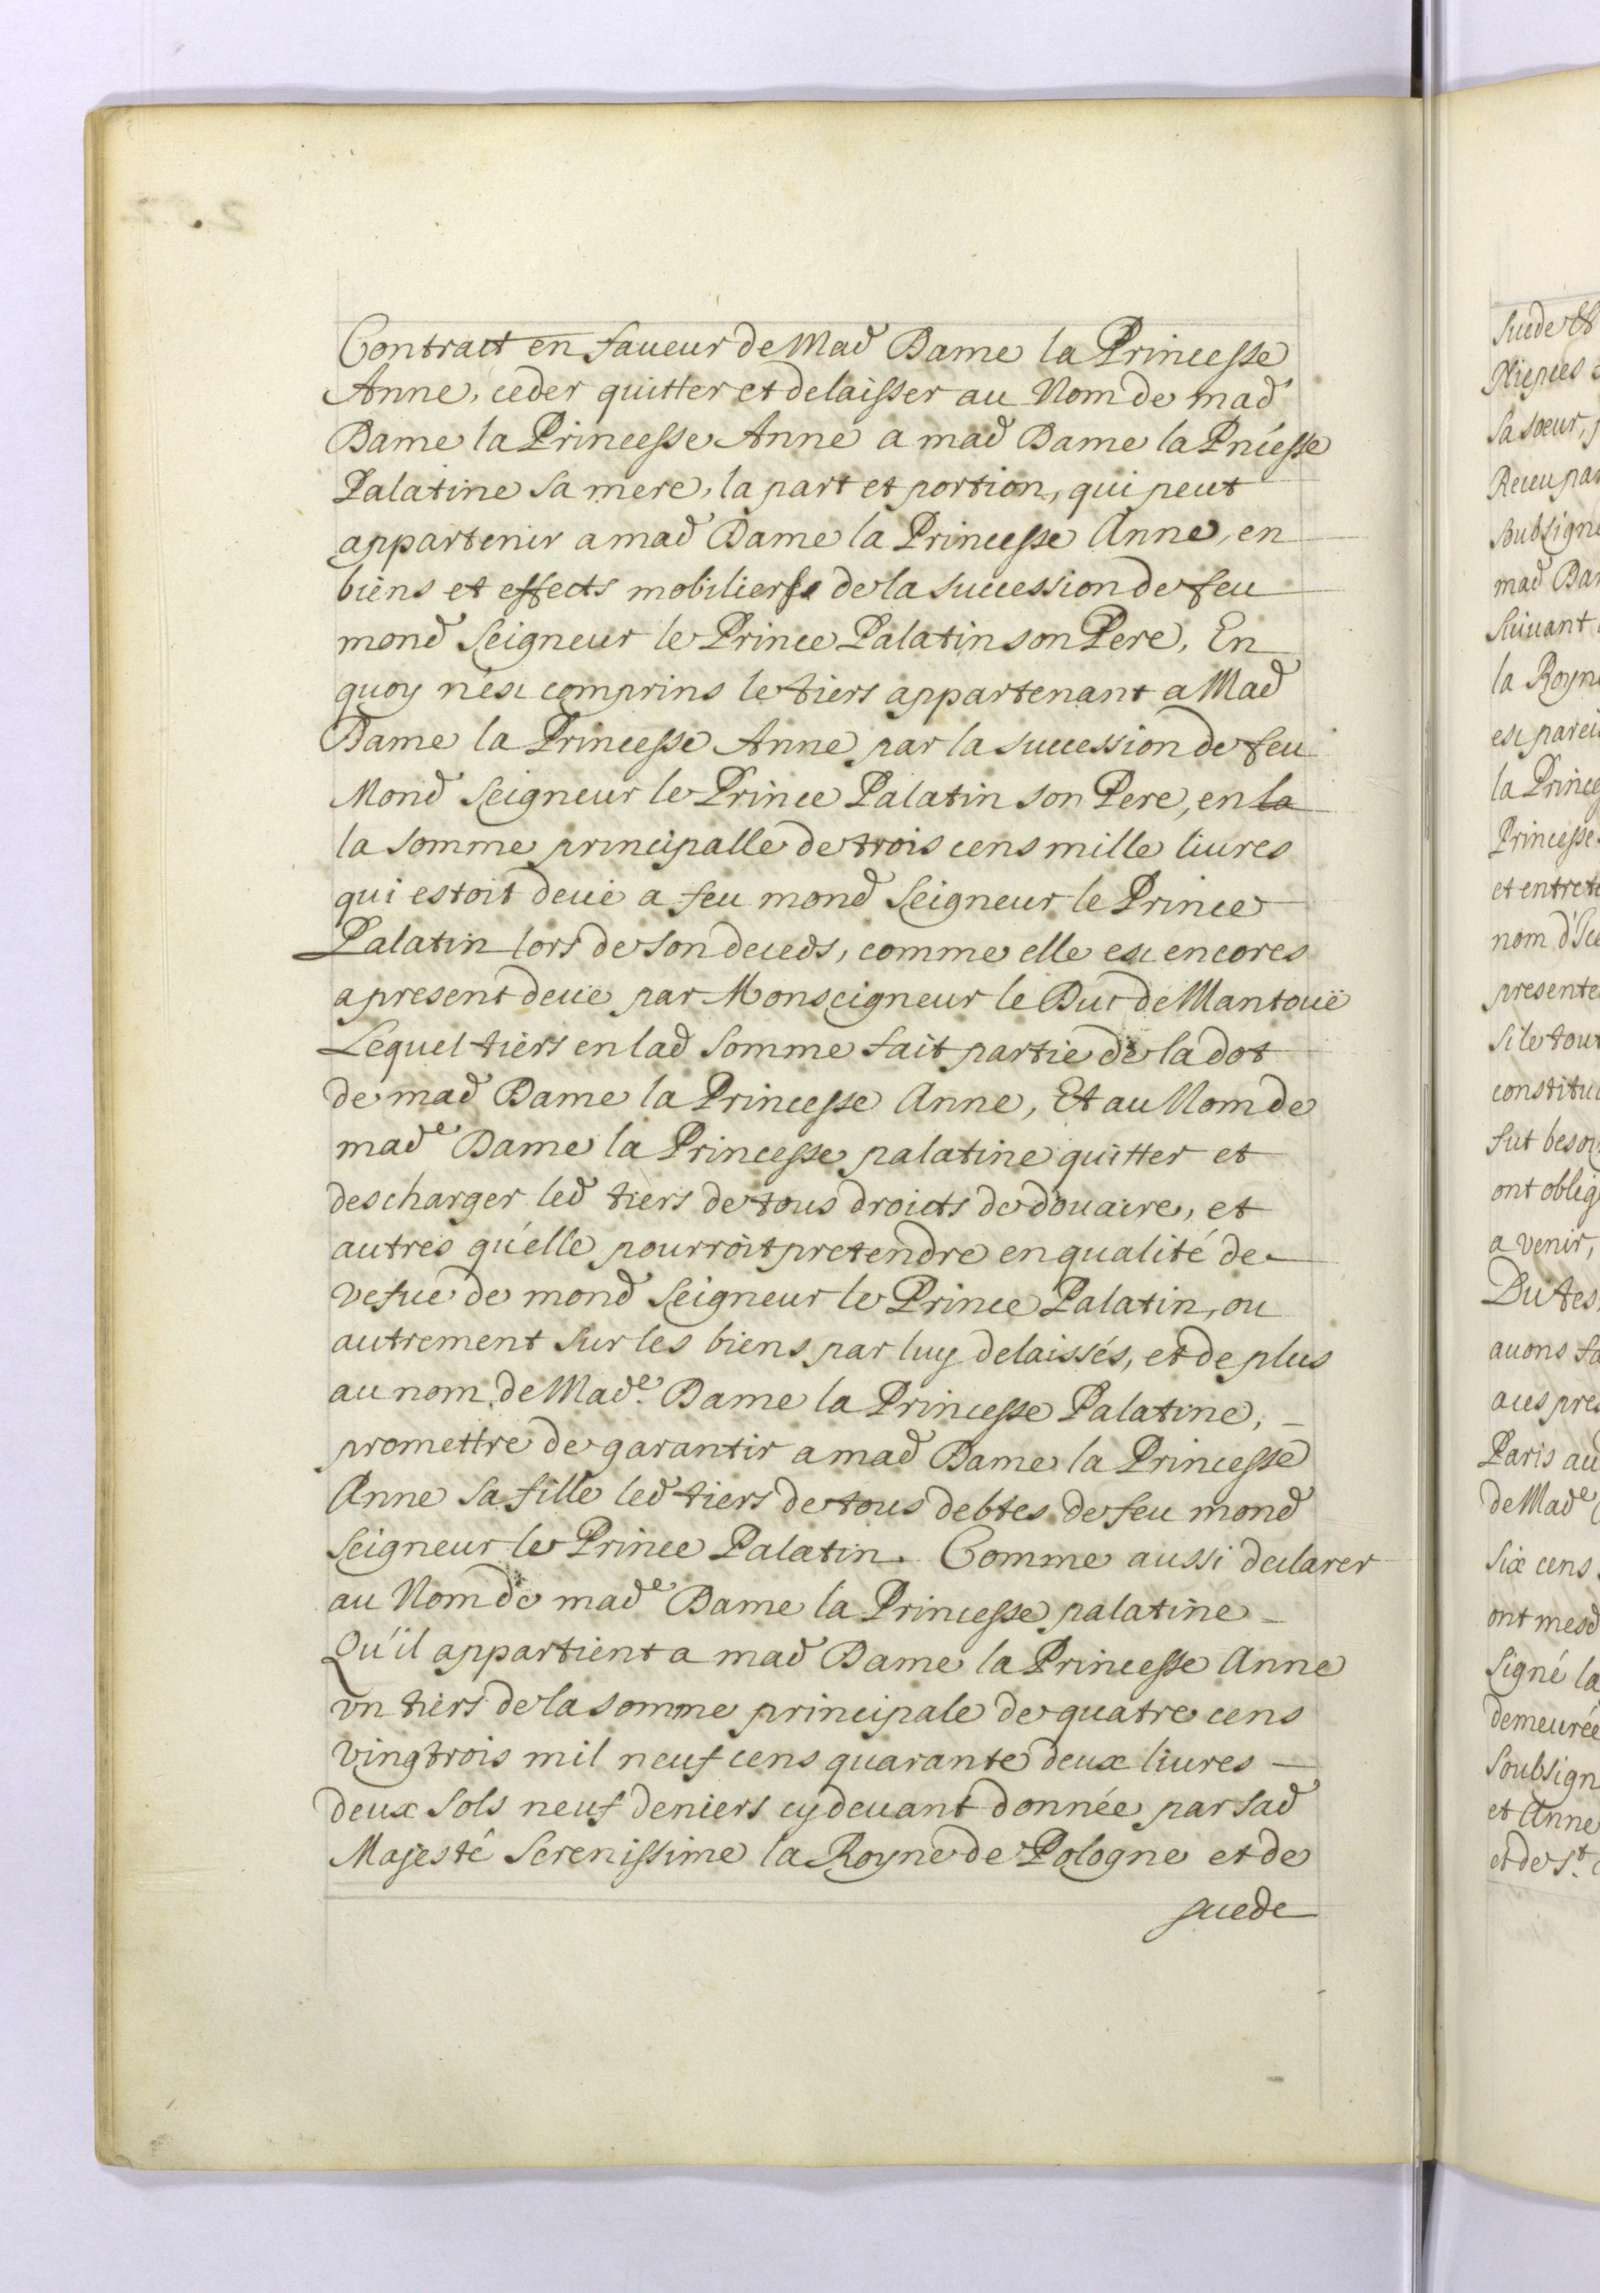 Contract en faueur de Mad Dame la Princesse
Anne, ceder quitter et delaisser au Nom de mad
Dame la Princesse Anne a mad Dame la Princesse
Palatine sa mere, la part et portion, qui peut
appartenir a mad Dame la Princesse Anne, en
biens et effects mobiliers de la succession de feu
mond Seigneur le Prince Palatin son Pere, En
quoy n'est comprins le tiers appartenant a Mad
Dame la Princesse Anne par la succession de feu
Mond Seigneur le Prince Palatin son Pere, en la
la somme principalle de trois cens mille liures
qui estoit deue a feu mond Seigneur le Prince
Palatin lors de son deceds, comme elle est encores
a present deue par Monseigneur le Duc de Mantouë
Lequel tiers en lad somme fait partie de la dot
de mad Dame la Princesse Anne, Et au Nom de
made Dame la Princesse palatine quitter et
descharger led tiers de tous droicts de douaire, et
autres qu'elle pourroit pretendre en qualité de
vefue de mond Seigneur le Prince Palatin, ou
autrement sur les biens par luy delaissés, et de plus
au nom de Made. Dame la Princesse Palatine,
promettre de garantir a mad Dame la Princesse
Anne sa fille led tiers de tous debtes de feu mond
Seigneur le Prince Palatin. Comme aussi declarer
au Nom de made Dame la Princesse palatine
Qu'il appartient a mad Dame la Princesse Anne
vn tiers de la somme principale de quatre cens
vingtrois mil neuf cens quarante deux liures
deux sols neuf deniers cy deuant donnée par sad
Majesté Serenissime la Royne de Pologne et de
suede